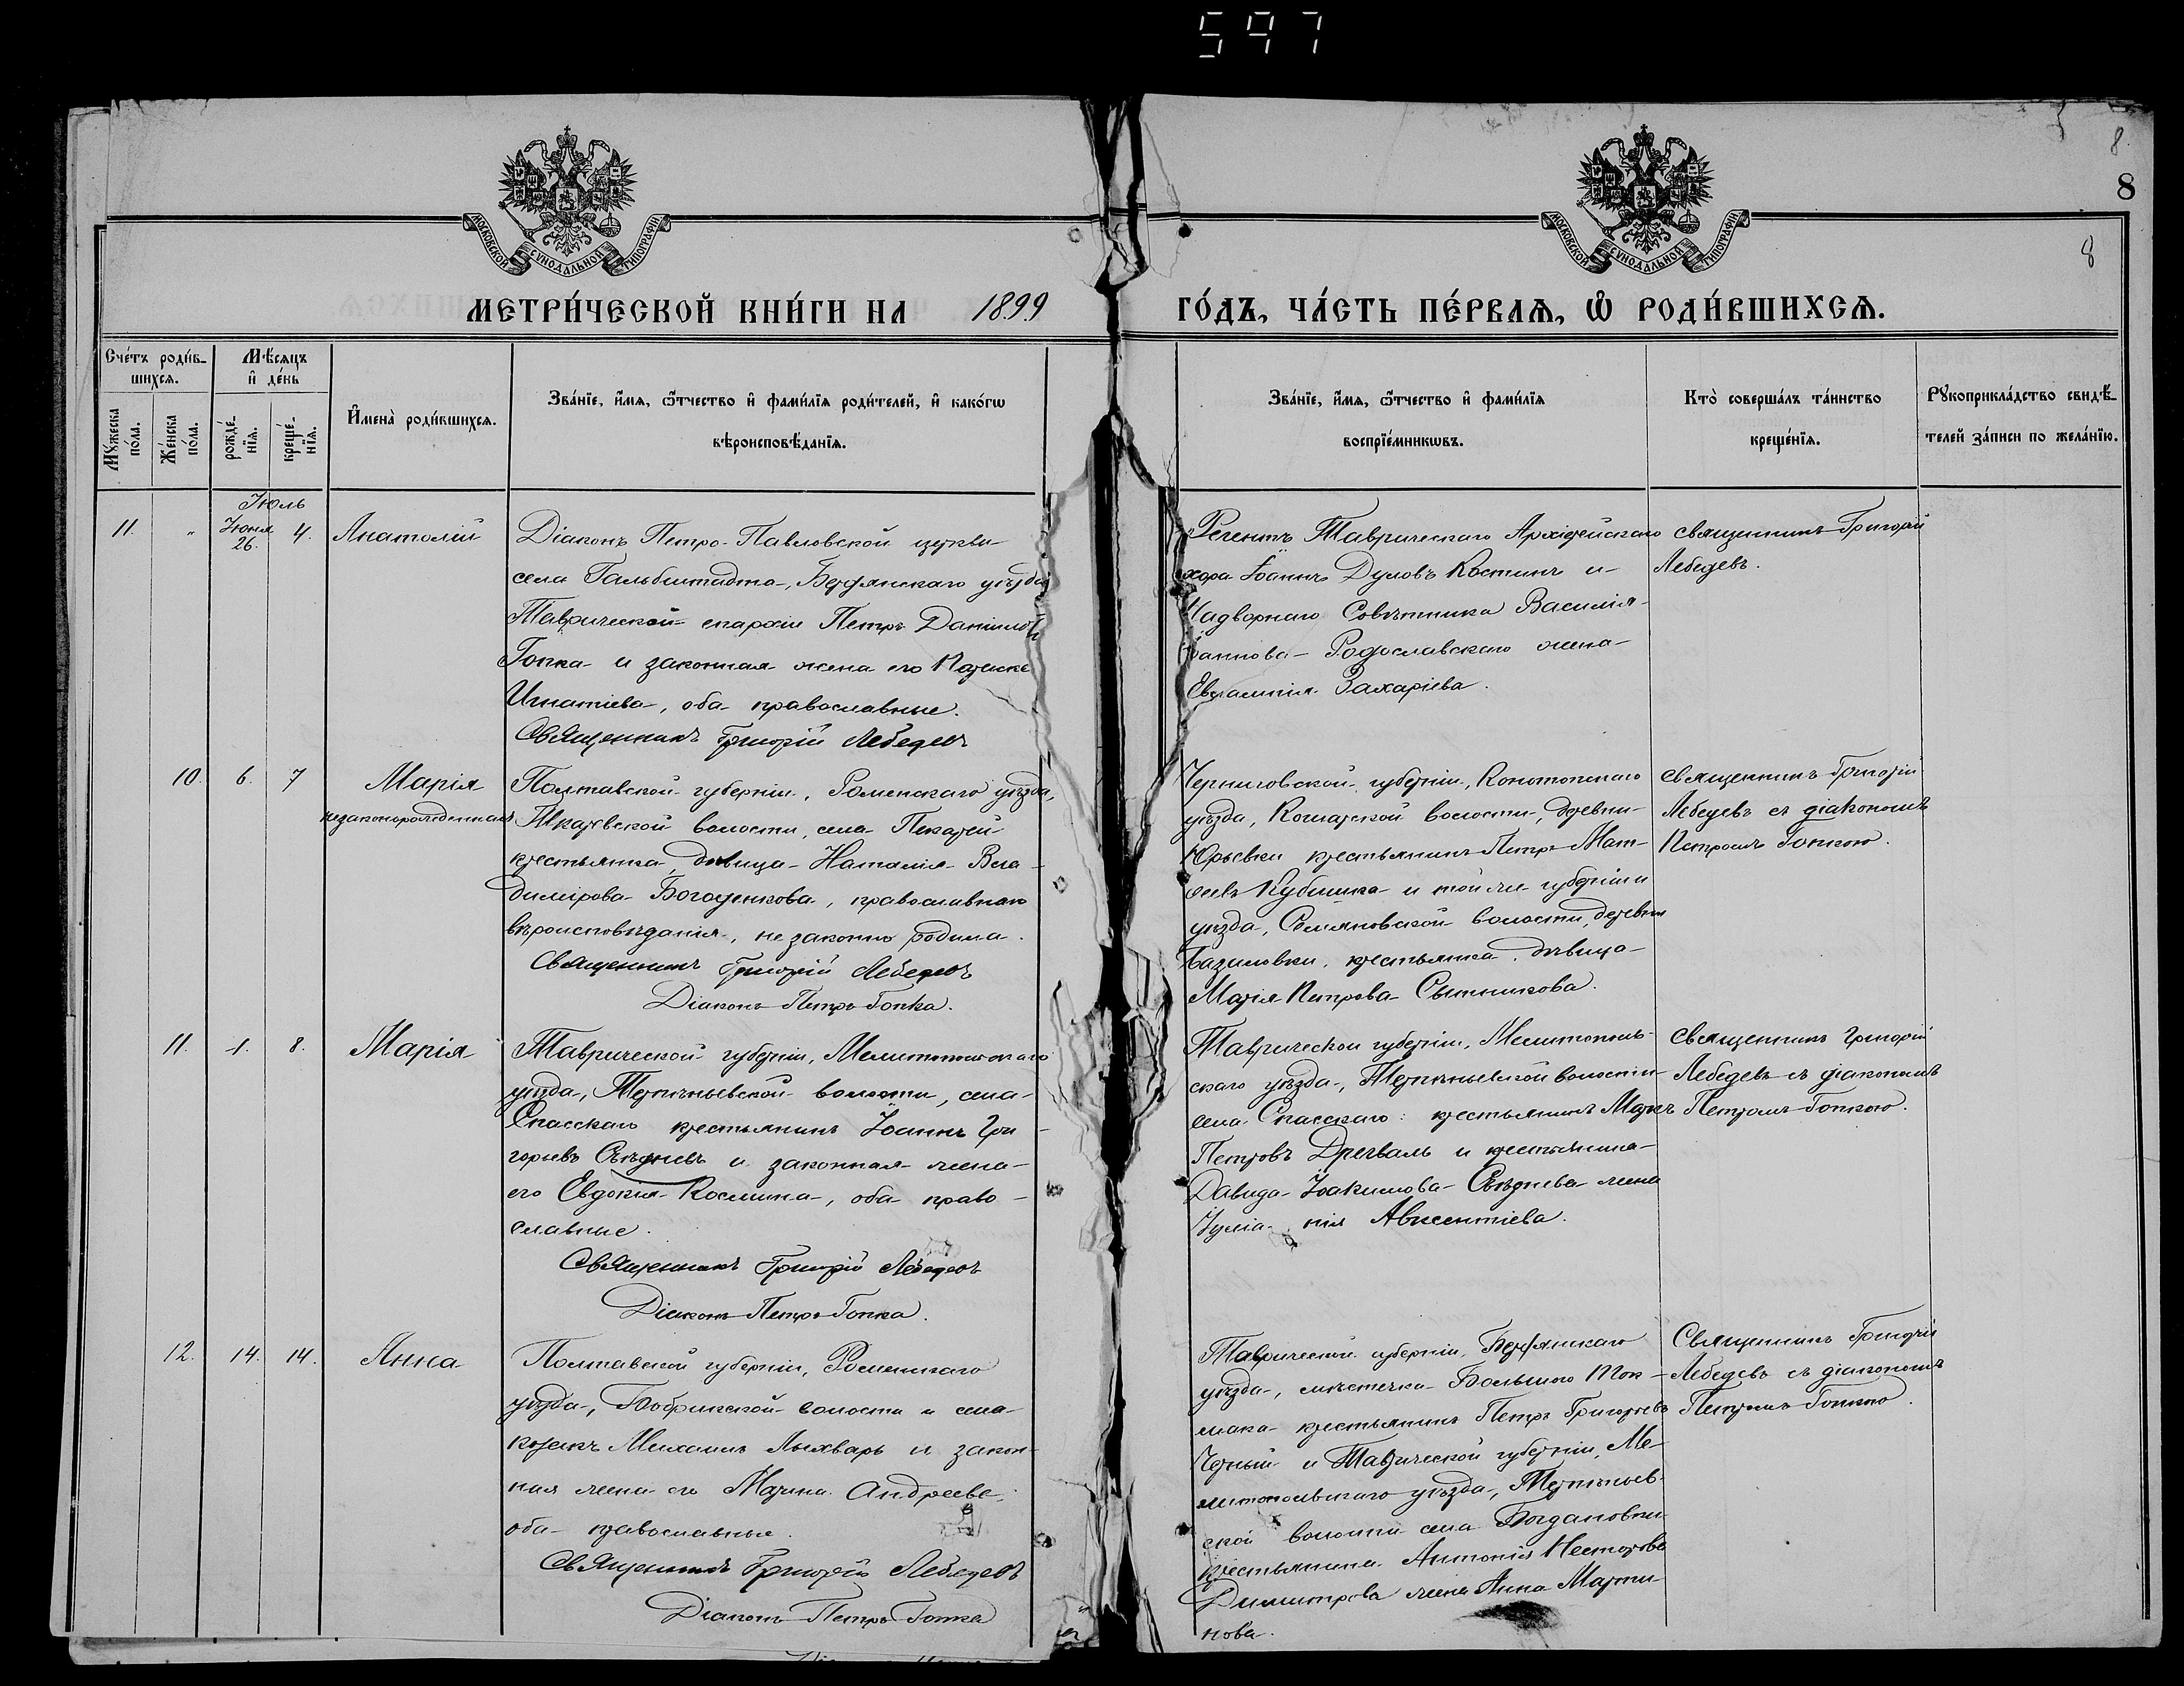 597
8
8
8
МОСКОВСКОЙ СУНОДАЛЬНОЙ ТИПОГРАФІИ
МОСКОВСКОЙ СУНОДАЛЬНОЙ ТИПОГРАФІИ
МЕТРИ́ЧЕСКОЙ КНИ́ГИ НА 1899 ГО́ДЪ, ЧА́СТЬ ПЕ́РВАѦ, Ѡ҆ РОДИ́ВШИХСѦ.
Сче́тъ роди́в-
шихся.
Мꙋ́жеска
по́ла.
Же́нска
по́ла.
Мѣ́сяцъ
и҆ де́нь
рожде́-
нїя.
креще́-
нїя.
И҆мена̀ роди́вшихся.
Зва́нїе, и҆́мя, ѻ҆́тчество и҆ фами́лїя роди́телей, и҆ како́гѡ
вѣроисповѣ́данїя.
Зва́нїе, и҆́мя, ѻ҆́тчество и҆ фами́лїя
воспрїе́мникѡвъ.
Кто̀ соверша́лъ та́инство
креще́нїя.
Рꙋкоприкла́дство свидѣ́-
телей за́писи по жела́нїю.
Іюль
11. " Іюня 26. 4. Анатолій
Діаконъ Петро-Павловской церкви
села Гальбштадта, Бердянскаго уѣзда
Таврической епархіи Петръ Даніиловъ
Гопка и законная жена его
Игнатіева, оба православные.
Священникъ Григорій Лебедевъ
Регентъ Таврическаго Архіерейскаго
хора Іоаннъ Дуловъ Костинъ и
Надворнаго Совѣтника Василія
Іоаннова Родославскаго жена
Евлампія Захаріева.
священникъ Григорій
Лебедевъ.
10. 6. 7 Марія
незаконорожденная
Полтавской губерніи, Роменскаго уѣзда,
волости, села Пекарей
крестьянка дѣвица Наталія Вла-
димірова Богаденкова, православнаго
вѣроисповѣданія, незаконно родила.
Священникъ Григорій Лебедевъ
Діаконъ Петръ Гопка.
Черниговской губерніи, Конотопскаго
уѣзда, волости, деревни
Юрьевки крестьянинъ Петръ Мат-
ѳеевъ и той же губерніи и
уѣзда, волости, деревни
Базиловки, крестьянка дѣвица
Марія Петрова Сытникова.
священникъ Григорій
Лебедевъ съ діакономъ
Петромъ Гопкою.
11. 1. 8. Марія
Таврической губерніи, Мелитопольскаго
уѣзда, Терпѣньевской волости, села
Спасскаго крестьянинъ Іоаннъ Гри-
горьевъ Свѣдневъ и законная жена
его Евдокія Космина, оба право-
славные.
Священникъ Григорій Лебедевъ
Діаконъ Петръ Гопка.
Таврической губерніи, Мелитополь-
скаго уѣзда, Терпѣньевской волости
села Спасскаго: крестьянинъ Маркъ
Петровъ Древаль и крестьянина
Давида Іоакимова Свѣднева жена
Іуліанія Авксентіева.
священникъ Григорій
Лебедевъ съ діакономъ
Петромъ Гопкою.
12. 14. 14. Анна
Полтавской губерніи, Роменскаго
уѣзда, Бобрикской волости и села
козакъ Михаилъ Лихварь и закон-
ная жена его Марина Андреева,
оба православные.
Священникъ Григорій Лебедевъ
Діаконъ Петръ Гопка
Таврической губерніи, Бердянскаго
уѣзда, мѣстечка Большого Ток-
мака крестьянинъ Петръ Григорьевъ
Черный и Таврической губерніи, Ме-
литопольскаго уѣзда, Терпѣньев-
ской волости села Богдановки
крестьянина Антонія Несторова
Димитрова жена Анна Марти-
нова.
Священникъ Григорій
Лебедевъ съ діакономъ
Петромъ Гопкою.